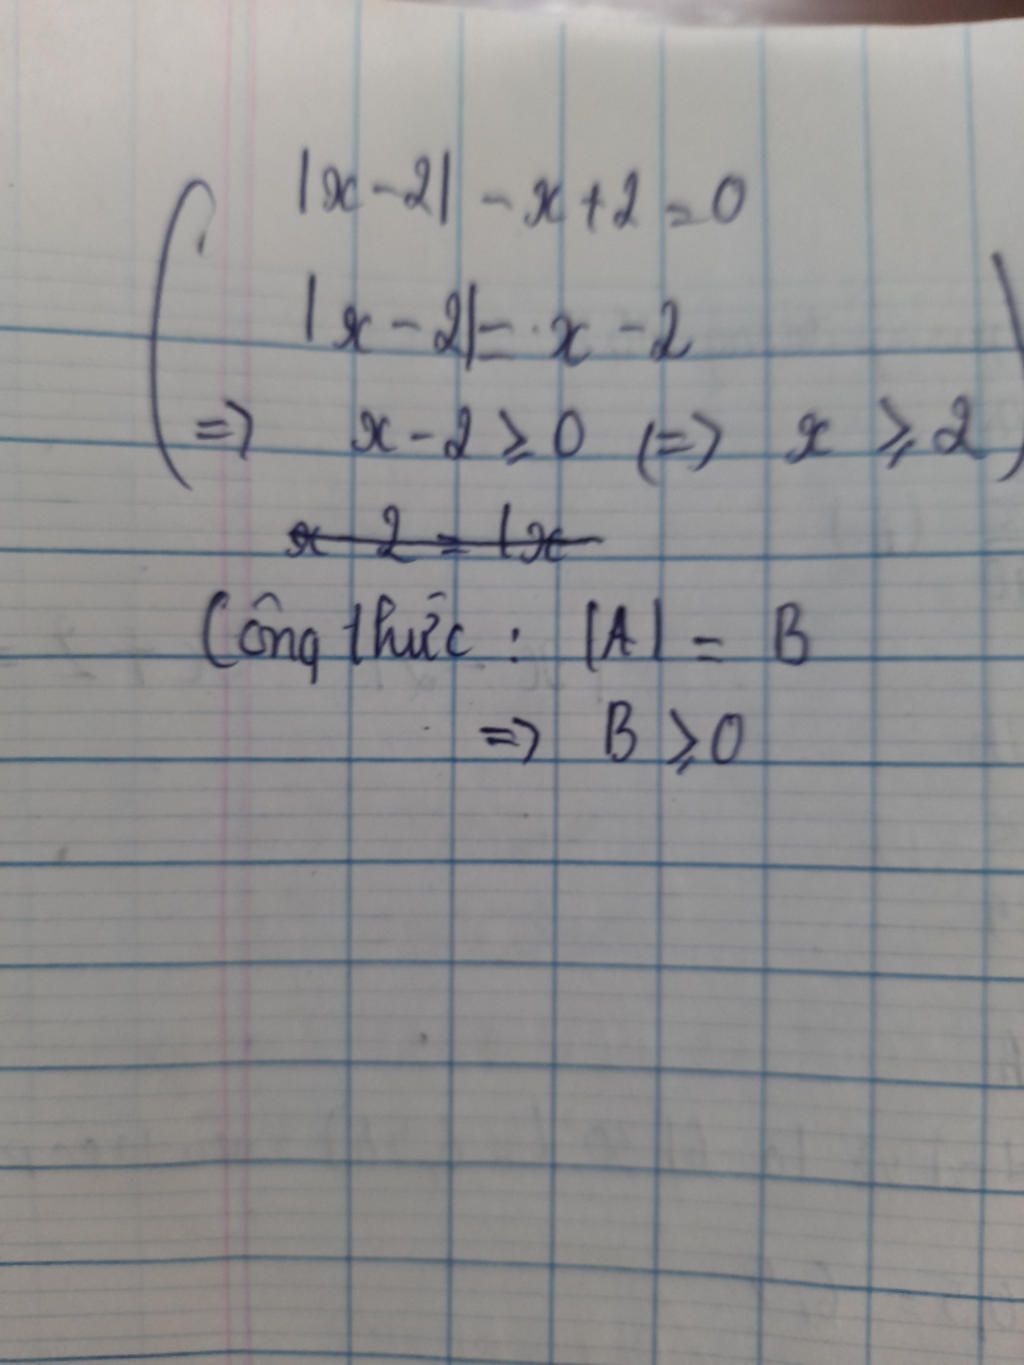 |x-2| - x + 2 = 0
|x - 2| = x - 2
=> x - 2 ≥ 0 (=> x ≥ 2
x 2 = |x
Công thức : |A| = B
=> B ≥ 0